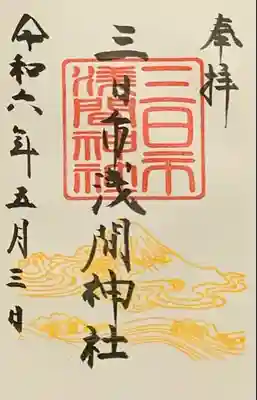 奉拝
三日市浅間神社
三日市
浅間神社
令和六年五月三日